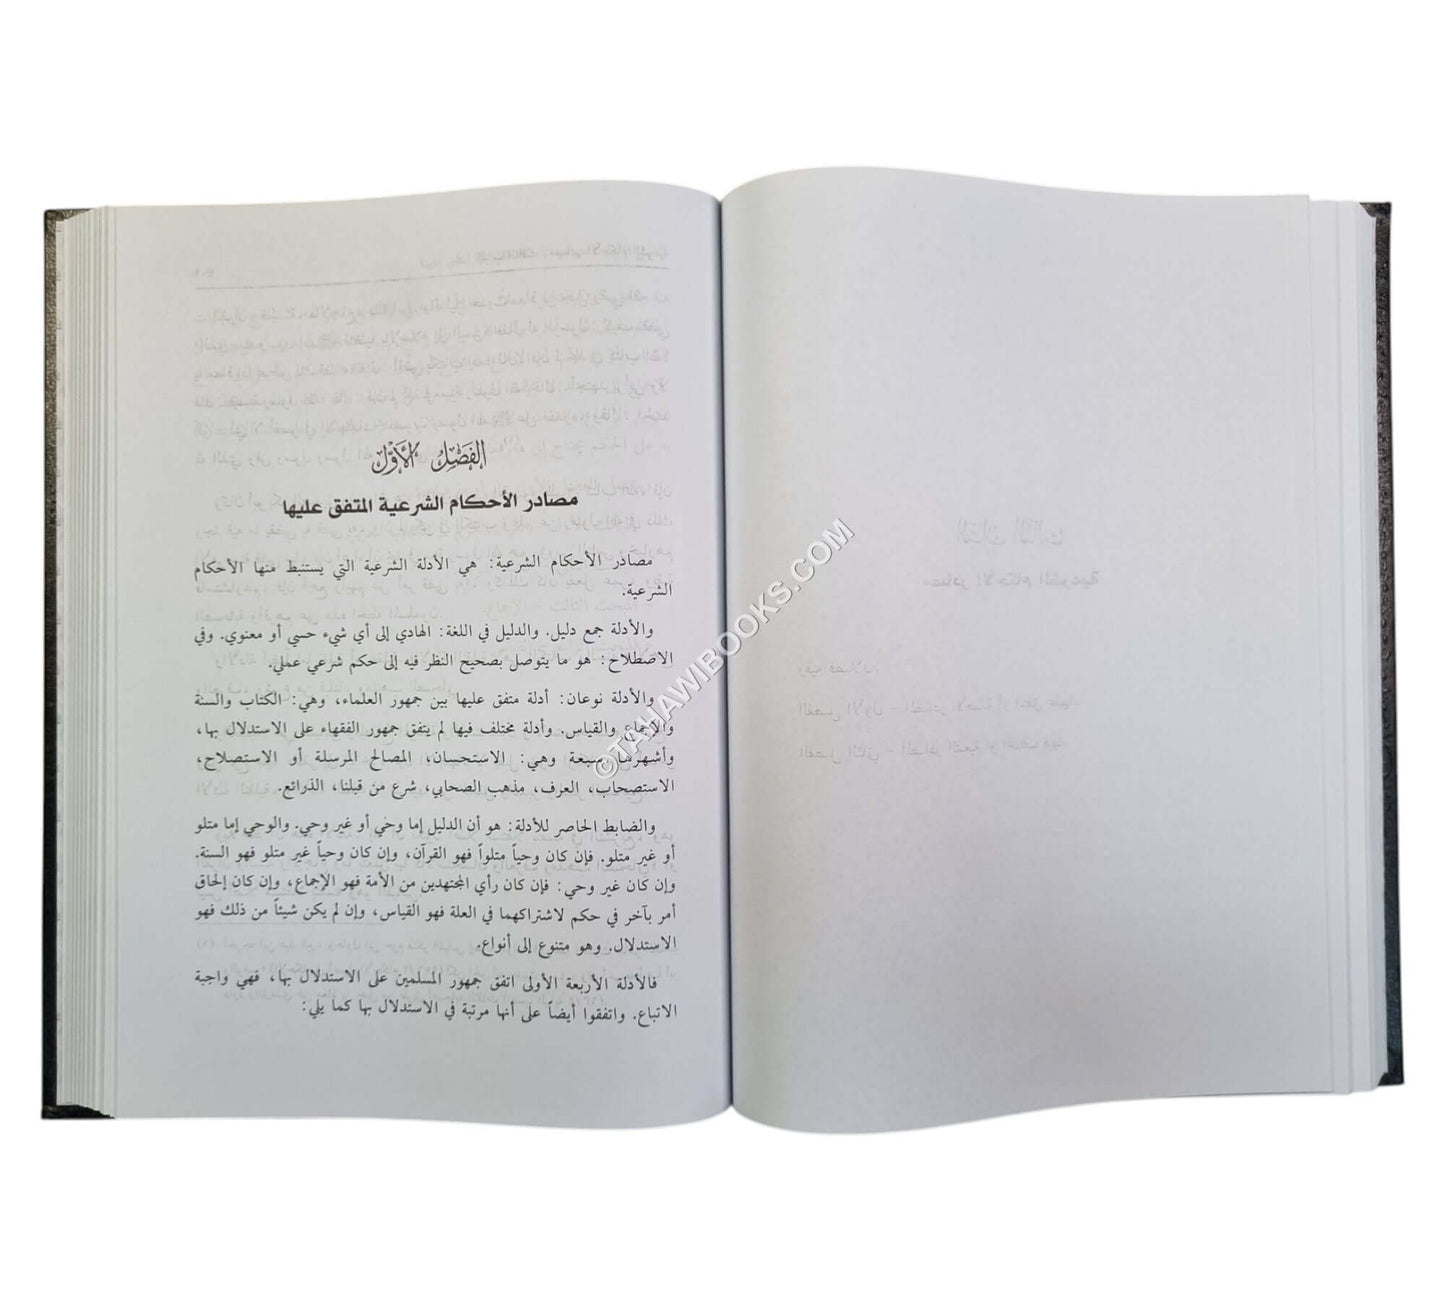 الفصل الأول
مصادر الأحكام الشرعية المتفق عليها
مصادر الأحكام الشرعية: هي الأدلة الشرعية التي يستنبط منها الأحكام
الشرعية.
والأدلة جمع دليل. والدليل في اللغة: الهادي إلى أي شيء حسي أو معنوي. وفي
الاصطلاح: هو ما يتوصل بصحيح النظر فيه إلى حكم شرعي عملي.
والأدلة نوعان: أدلة متفق عليها بين جمهور العلماء، وهي: الكتاب والسنة
والإجماع والقياس. وأدلة مختلف فيها لم يتفق جمهور الفقهاء على الاستدلال بها،
وأشهرها سبعة وهي: الاستحسان، المصالح المرسلة أو الاستصلاح،
الاستصحاب، العرف، مذهب الصحابي، شرع من قبلنا، الذرائع.
والضابط الحاصر للأدلة: هو أن الدليل إما وحي أو غير وحي. والوحي إما متلو
أو غير متلو. فإن كان وحياً متلواً فهو القرآن، وإن كان وحياً غير متلو فهو السنة.
وإن كان غير وحي: فإن كان رأي المجتهدين من الأمة فهو الإجماع، وإن كان إلحاق
أمر بآخر في حكم لاشتراكهما في العلة فهو القياس، وإن لم يكن شيئاً من ذلك فهو
الاستدلال. وهو متنوع إلى أنواع.
فالأدلة الأربعة الأولى اتفق جمهور المسلمين على الاستدلال بها، فهي واجبة
الاتباع. واتفقوا أيضاً على أنها مرتبة في الاستدلال بها كما يلي:
©TAHAWIBOOKS.COM